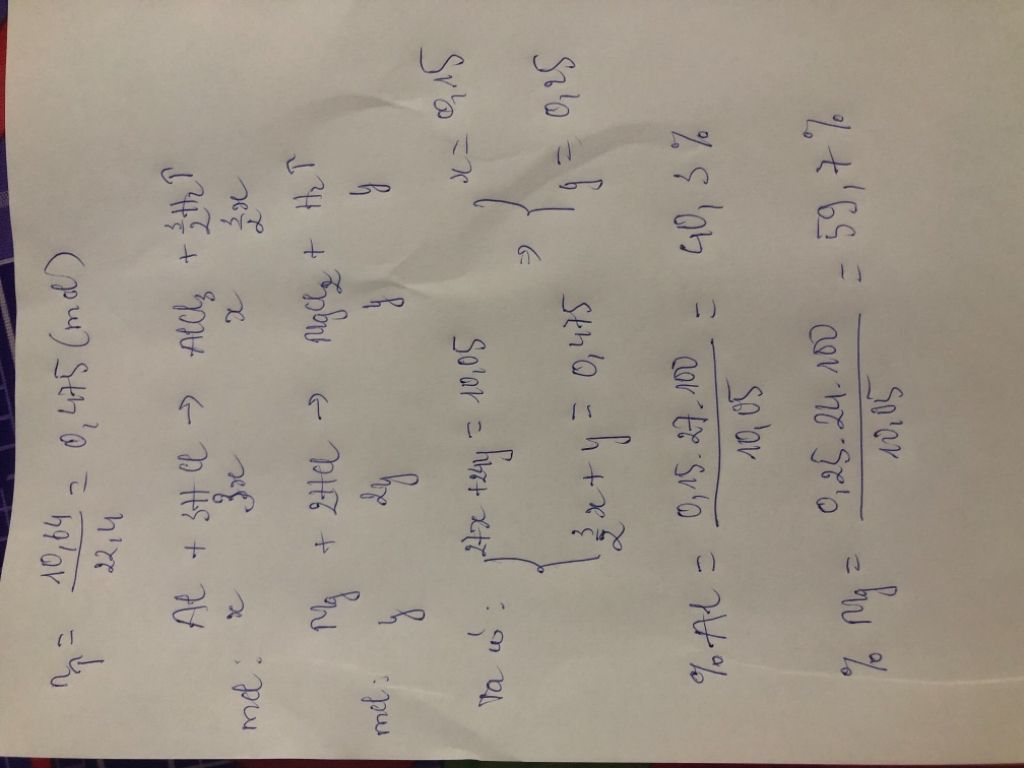 n↑ = 10,64 / 22,4 = 0,475 (mol)
Al + 3HCl → AlCl3 + 3/2H2↑
mol: x 3x x 3/2x
Mg + 2HCl → MgCl2 + H2↑
mol: y 2y y y
Ta có: { 27x + 24y = 10,05 ; 3/2x + y = 0,475 ⇒ { x = 0,15 ; y = 0,25
%Al = 0,15.27.100 / 10,05 = 40,3 %
% Mg = 0,25.24.100 / 10,05 = 59,7 %